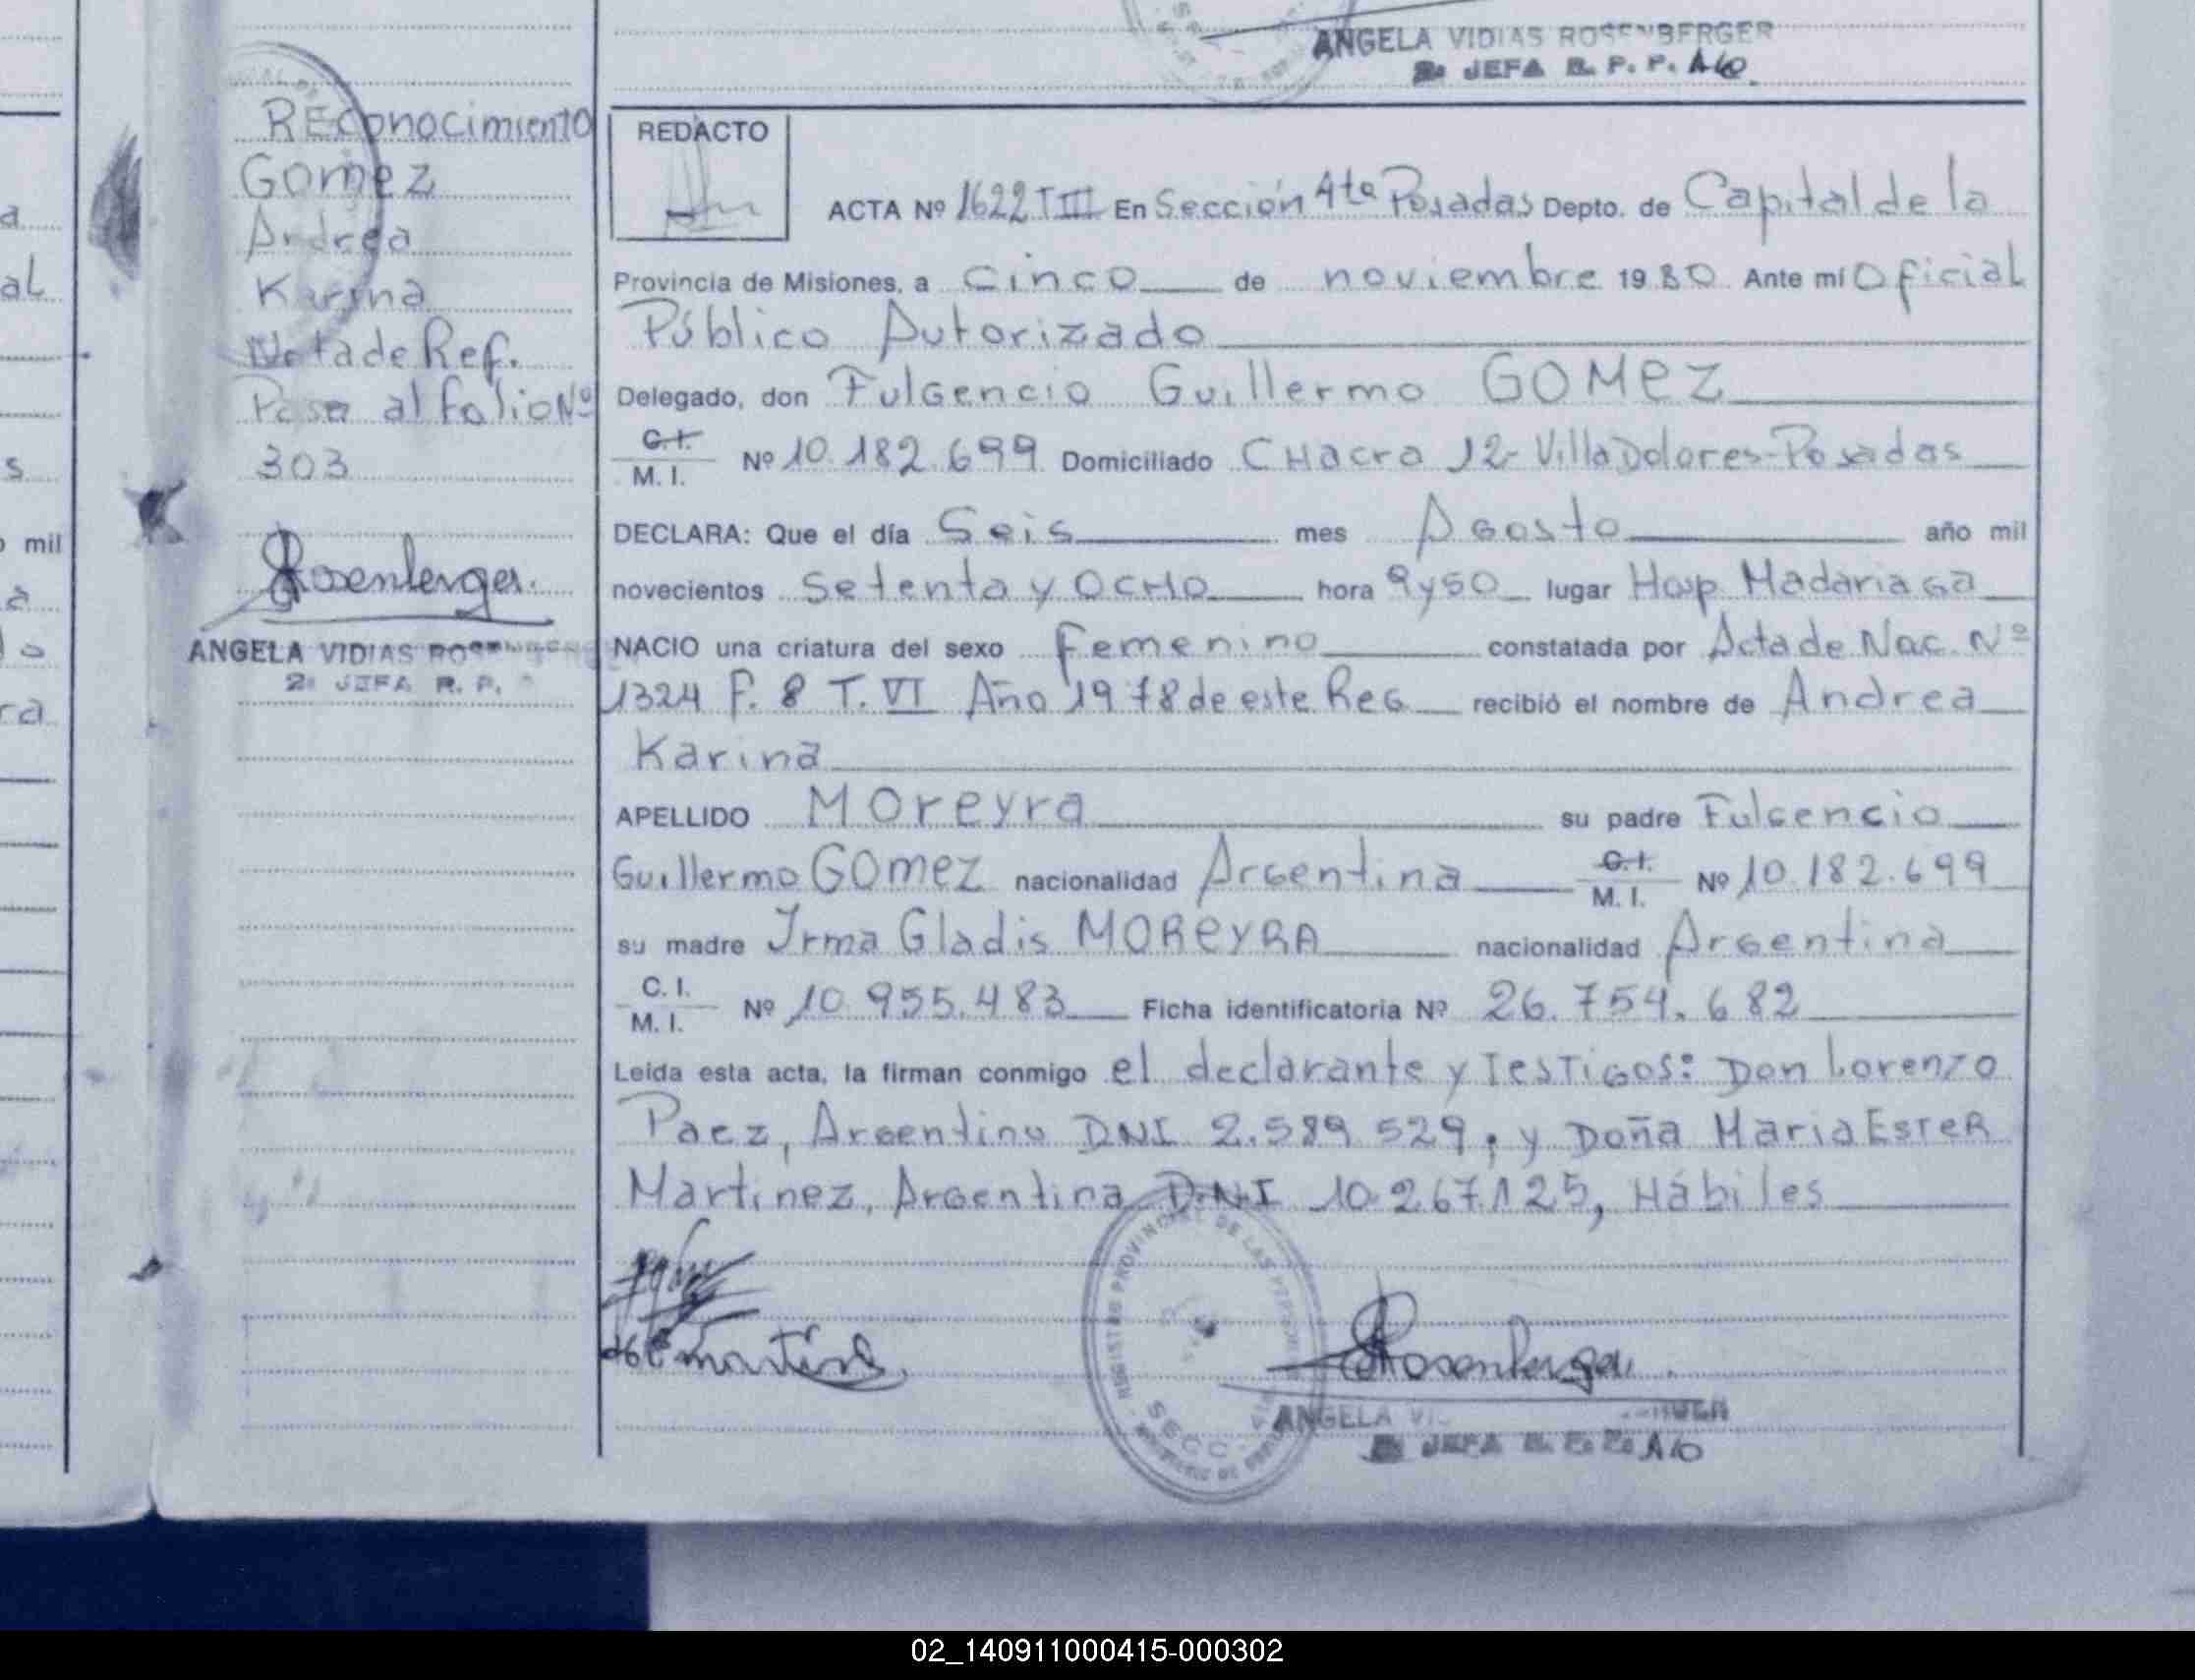 ANGELA VIDIAS ROSENBERGER
2a JEFA R. P. P. A/C
REconocimiento
Gomez
Andrea
Karina
Nota de Ref.
Pasa al folio Nº
303
Rosenberger.
ANGELA VIDIAS ROSENBERGER
2a JEFA R. P.
REDACTO
ACTA Nº 1622 T III En Sección 4ta Posadas Depto. de Capital de la
Provincia de Misiones, a cinco de noviembre 1980 Ante mí Oficial
Público Autorizado
Delegado, don Fulgencio Guillermo GOMEZ
C.I.
M. I. Nº 10.182.699 Domiciliado CHacra 12- Villa Dolores-Posadas
DECLARA: Que el día Seis mes Agosto año mil
novecientos Setenta y OCHO hora 9 y 50 lugar Hosp. Madariaga
NACIO una criatura del sexo Femenino constatada por Acta de Nac. Nº
1324 F. 8 T. VI Año 1978 de este Reg recibió el nombre de Andrea
Karina
APELLIDO Moreyra su padre Fulgencio
Guillermo GOMEZ nacionalidad Argentina C.I.
M. I. Nº 10.182.699
su madre Irma Gladis MOREYRA nacionalidad Argentina
C. I.
M. I. Nº 10.955.483 Ficha identificatoria Nº 26.754.682
Leida esta acta, la firman conmigo el declarante y Testigos: Don Lorenzo
Paez, Argentino DNI 2.589.529; y Doña Maria Ester
Martinez, Argentina D.N.I 10.267.125, Hábiles
Rosenberger.
REGISTRO PROVINCIAL DE LAS PERSONAS
SECC.
ANGELA
2a JEFA R. P. P. A/C
al
s
mil
ra
02_140911000415-000302